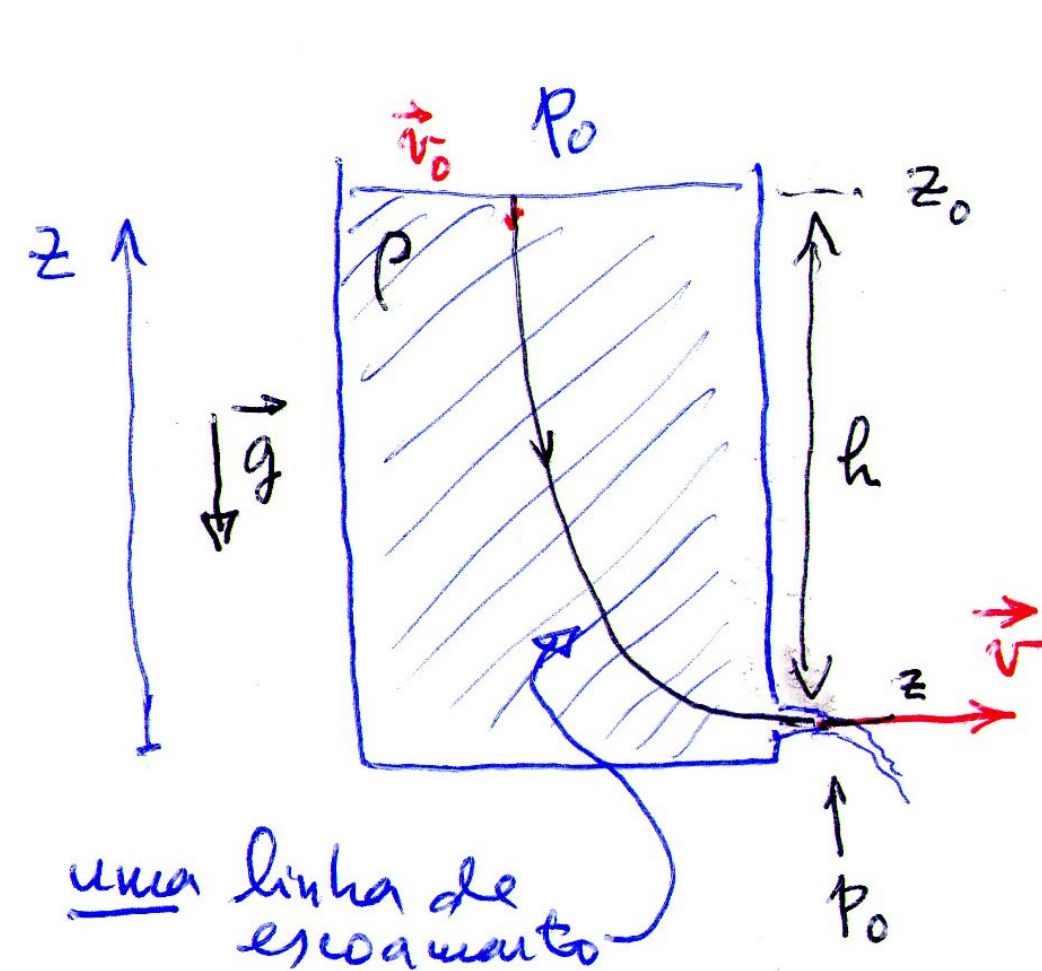 v₀ p₀
z₀
z
ρ
g
h
v
z
uma linha de
escoamento
p₀